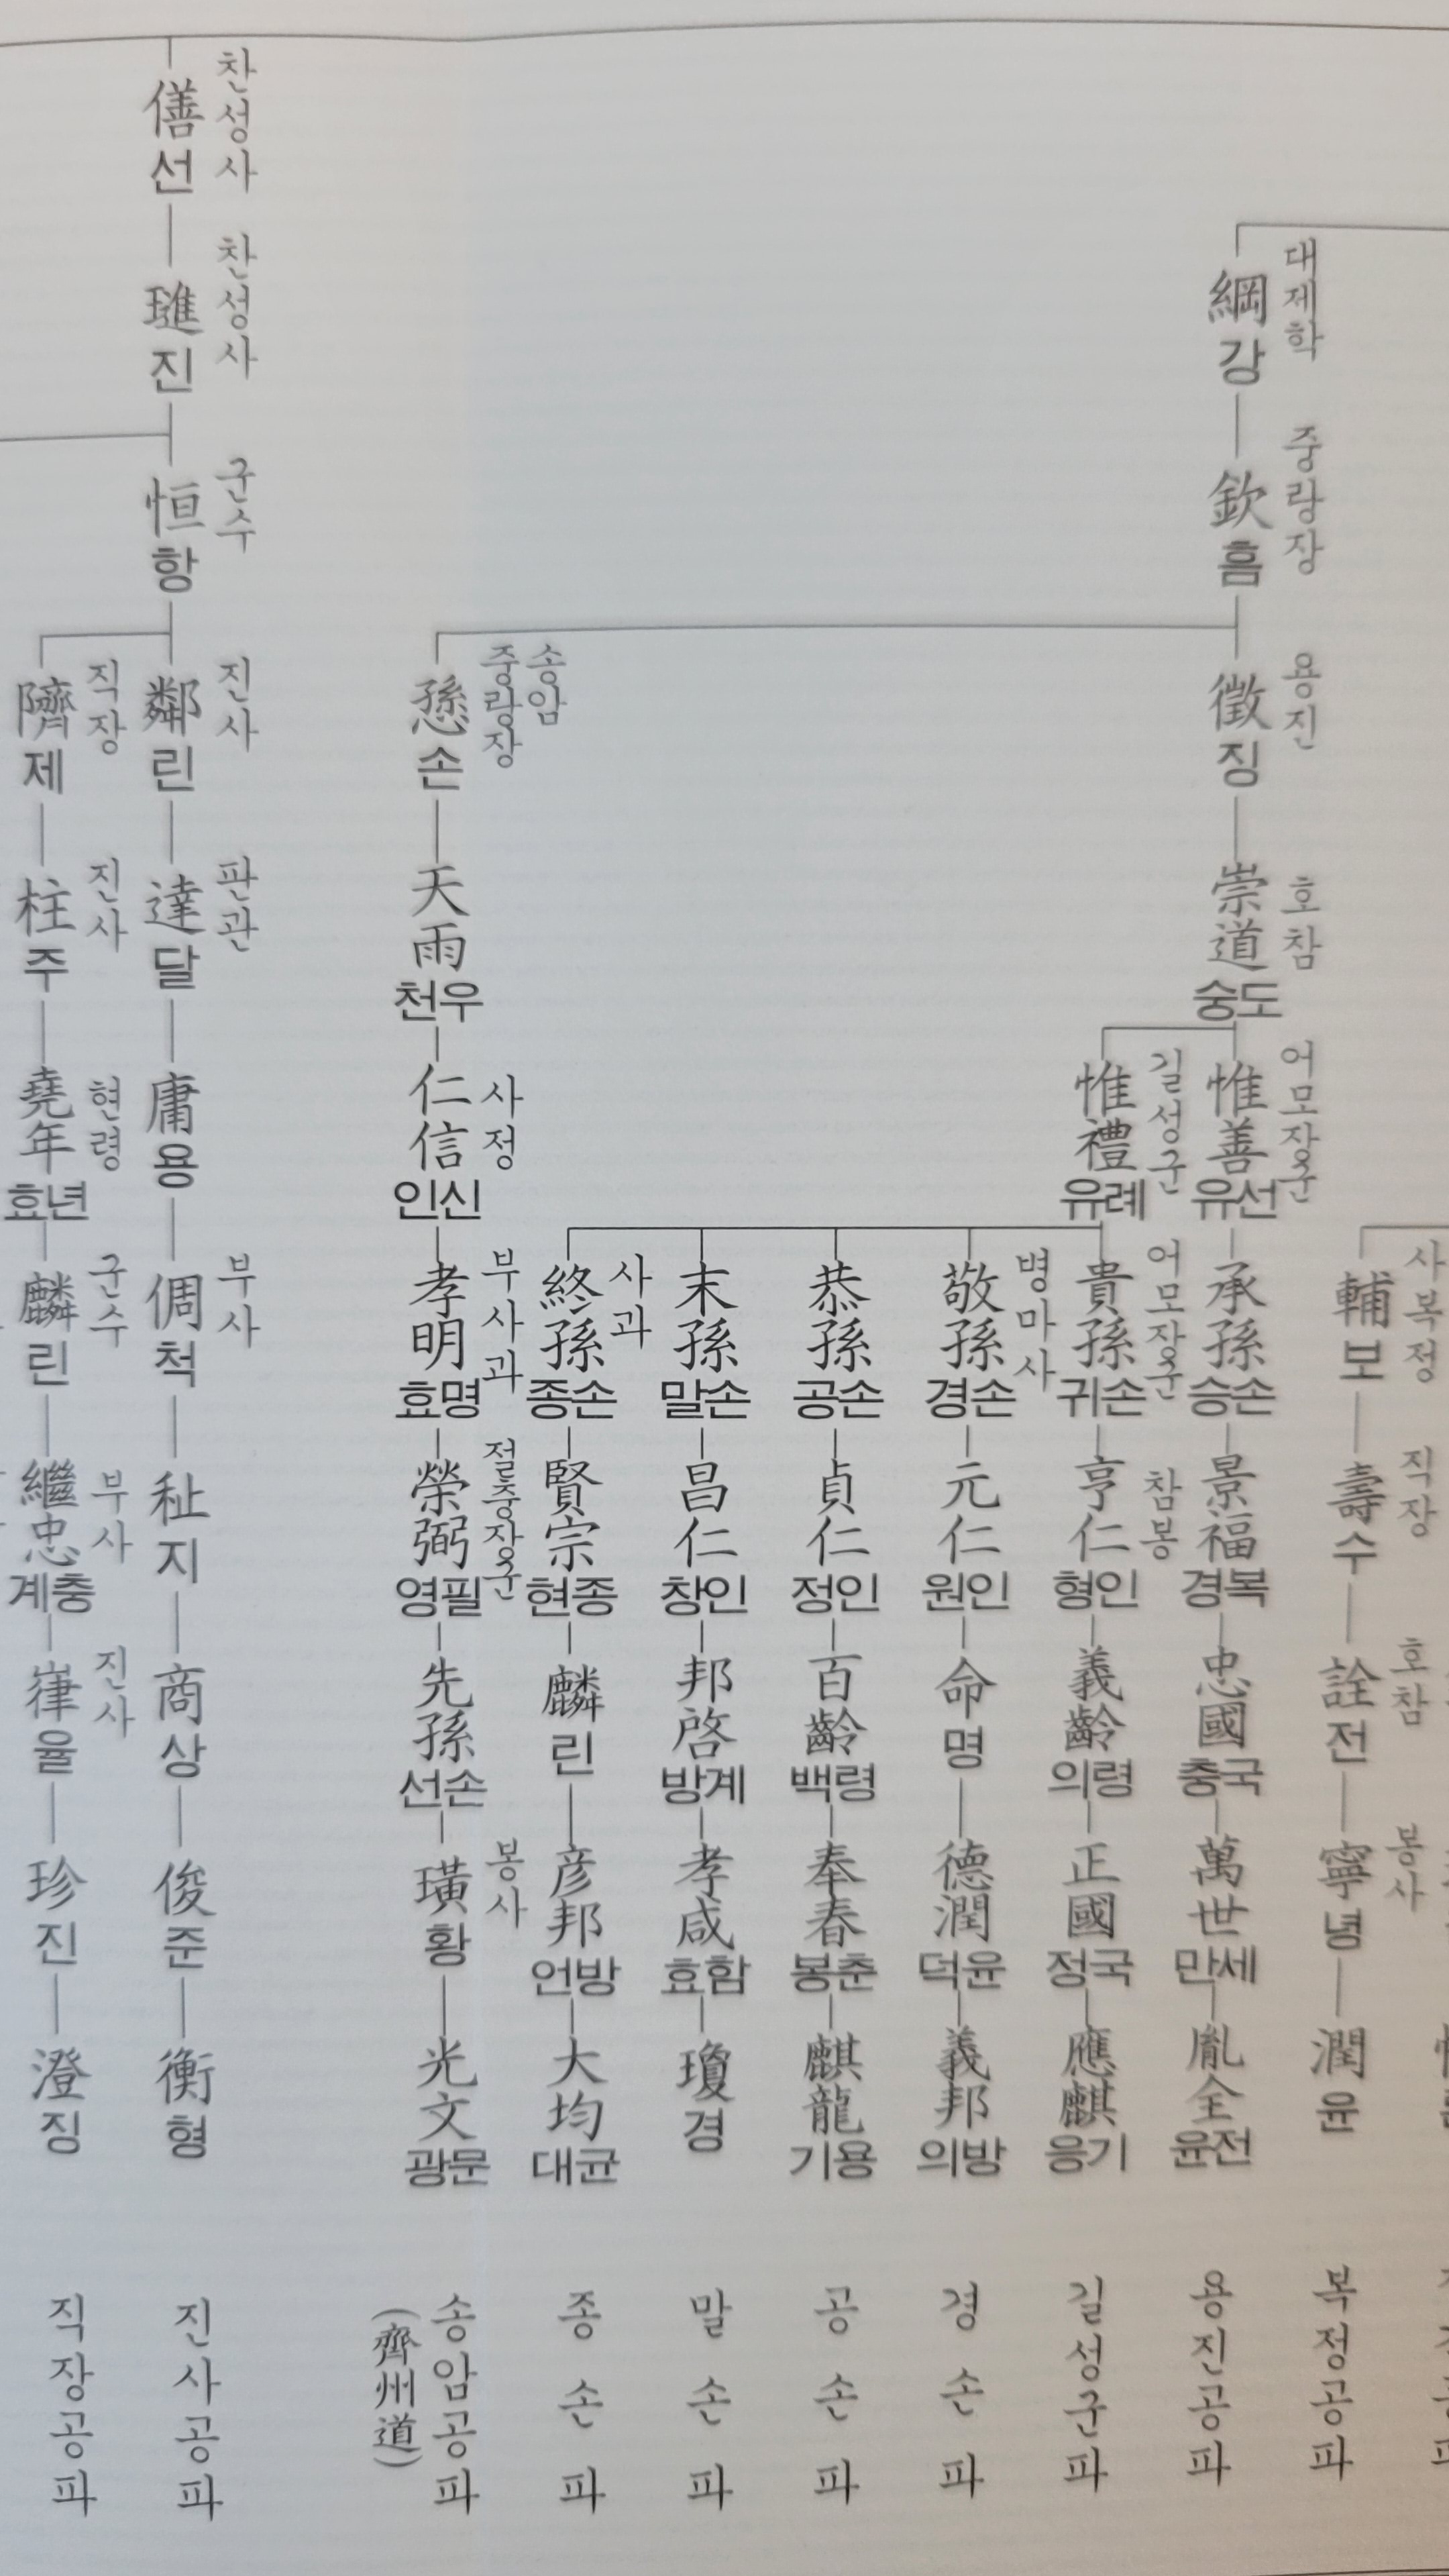 사복정
輔
보
직장
壽
수
호참
詮
전
봉사
寧
녕
潤
윤
복정공파
대제학
綱
강
중랑장
欽
흠
용진
徵
징
호참
崇道
숭도
어모장군
惟善
유선
承孫
승손
景福
경복
忠國
충국
萬世
만세
胤全
윤전
용진공파
길성군
惟禮
유례
어모장군
貴孫
귀손
참봉
亨仁
형인
義齡
의령
正國
정국
應麒
응기
길성군파
병마사
敬孫
경손
元仁
원인
命
명
德潤
덕윤
義邦
의방
경손파
恭孫
공손
貞仁
정인
百齡
백령
奉春
봉춘
麒龍
기용
공손파
末孫
말손
昌仁
창인
邦啓
방계
孝咸
효함
瓊
경
말손파
사과
終孫
종손
賢宗
현종
麟
린
彦邦
언방
大均
대균
종손파
송암
중랑장
愻
손
天雨
천우
사정
仁信
인신
부사과
孝明
효명
절충장군
榮弼
영필
先孫
선손
봉사
璜
황
光文
광문
송암공파
(齊州道)
찬성사
僐
선
찬성사
璡
진
군수
恒
항
진사
鄰
린
판관
達
달
庸
용
부사
倜
척
祉
지
商
상
俊
준
衡
형
진사공파
직장
隮
제
진사
柱
주
현령
堯年
효년
군수
麟
린
부사
繼忠
계충
진사
嵂
율
珍
진
澄
징
직장공파